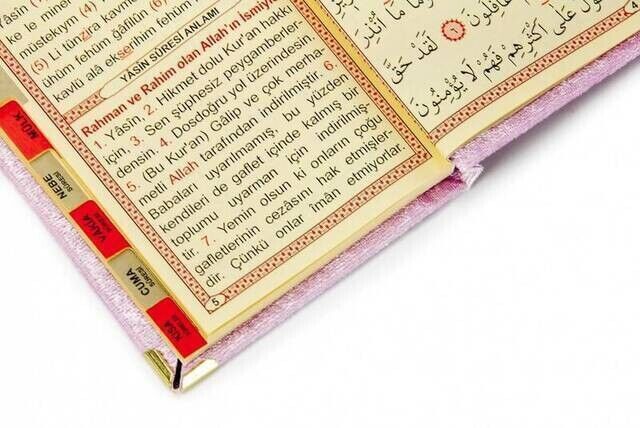 ze le minel
müstekıym (4)
(5) Li tünzira kavmen
ühüm fehüm ğafilûn (6)
kavlü alâ ekserihim fehüm
YÂSÎN SÛRESİ ANLAMI
Rahman ve Rahim olan Allah'ın İsmiyle
1. Yâsîn, 2. Hikmet dolu Kur'an hakkı
için, 3. Sen şüphesiz peygamberler-
densin. 4. Dosdoğru yol üzerindesin.
5. (Bu Kur'an) Gâlip ve çok merha-
metli Allah tarafından indirilmiştir. 6.
Babaları uyarılmamış, bu yüzden
kendileri de gaflet içinde kalmış bir
toplumu uyarman için indirilmiş-
tir. 7. Yemin olsun ki onların çoğu
gafletlerinin cezasını hak etmişler-
dir. Çünkü onlar îmân etmiyorlar.
5
مَا أُنْذِرَ
غَافِلُونَ ﴿٦﴾ لَقَدْ حَقَّ
الْقَوْلُ عَلَى أَكْثَرِهِمْ فَهُمْ لَا يُؤْمِنُونَ
MÜLK
NEBE
SÛRESİ
VÂKIA
SÛRESİ
CUMA
SÛRESİ
KISA
SÛRELER